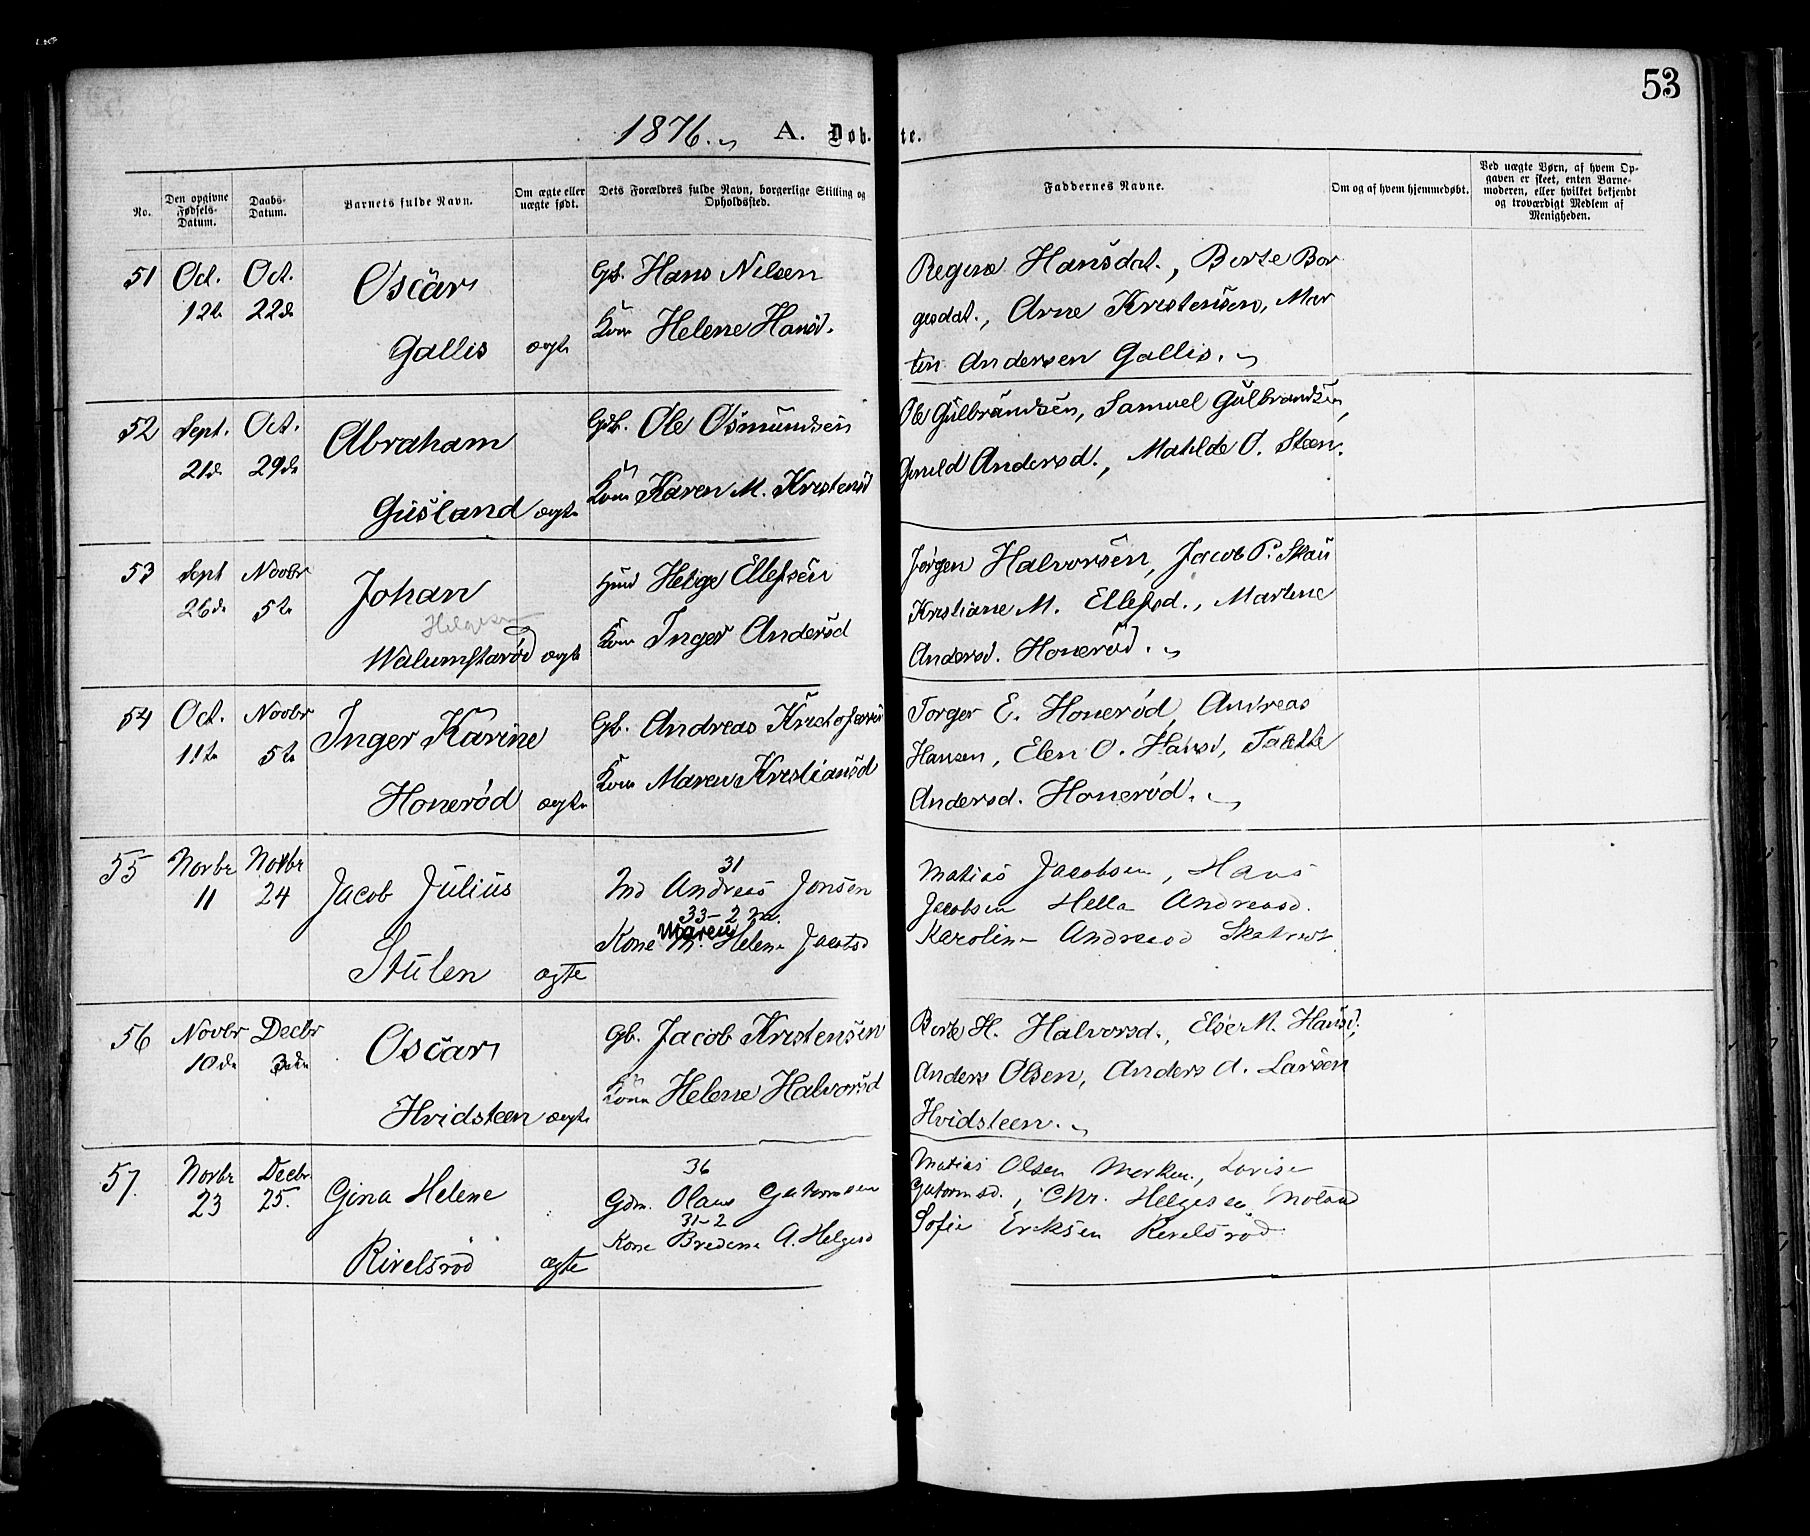 53
1876. A. Døb. te.
No.
Den opgivne Fødsels-Datum.
Daabs-Datum.
Barnets fulde Navn.
Om ægte eller uægte født.
Dets Forældres fulde Navn, borgerlige Stilling og Opholdssted.
Faddernes Navne.
Om og af hvem hjemmedøbt.
Ved uægte Børn, af hvem Opgaven er skeet, enten Barnemoderen, eller hvilket bekjendt og troværdigt Medlem af Menigheden.
51 Oct. Oct. Oscar Gb. Hans Nilsen Regine Hansdat., Berte Bor
12te 22de Kone Helene Hansd. gesdat., Arne Kristensen, Mar
Gallis ægte tin Andersen Gallis.
52 Sept. Oct. Abraham Gdb. Ole Osmundsen Ole Gulbrandsen, Samuel Gulbrandsen,
21de 29de Kone Karen M. Kristensd Andersd., Matilde O. Steen.
Gusland ægte
53 Sept Novbr Johan Helge Ellefsen Jørgen Halvorsen, Jacob P. Skau
26de 5te Helgesen Kone Inger Andersd Kristiane M. Ellefsd., Martene
Walumstarød ægte Andersd. Honerød.
54 Oct. Novbr Inger Karine Gb. Andreas Kristofersen Torger E. Honerød, Andreas
11te 5te Kone Maren Kristiansd Hansen, Elen O. Hansd, Talette
Honerød ægte Andersd. Honerød.
55 Novbr Novbr Jacob Julius 31 Ind Andreas Jonsen Matias Jacobsen, Hans
11 24 33-2 Jacobsen Hella Andreasd.
Kone Maren Helene Jacobsd Karoline Andreasd
Stulen ægte
56 Novbr Decbr Oscar Gb. Jacob Kristensen Berte H. Halvorsd., Else M. Hansd,
10de 3die Kone Helene Halvorsd Anders Olsen, Anders A. Larsen
Hvidsteen ægte Hvidsteen.
57. Novbr Decbr. Gina Helene 36 Matias Olsen Merken, Lovise
23 25. Gdm. Olaus Gutormsen Gutormsd., Chr. Helgesen Moland
31-2
Kone Bredine A. Helgesd Sofie Eriksen Rivelsrød
Rivelsrød ægte